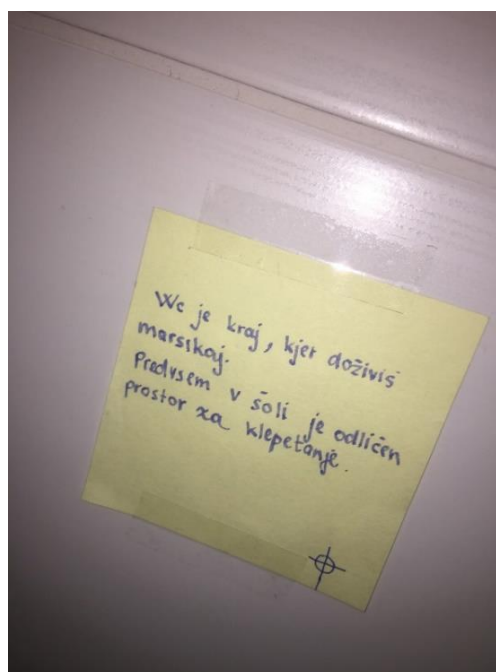 Wc je kraj, kjer doživiš
marsikaj.
Predvsem v šoli je odličen
prostor za klepetanje.